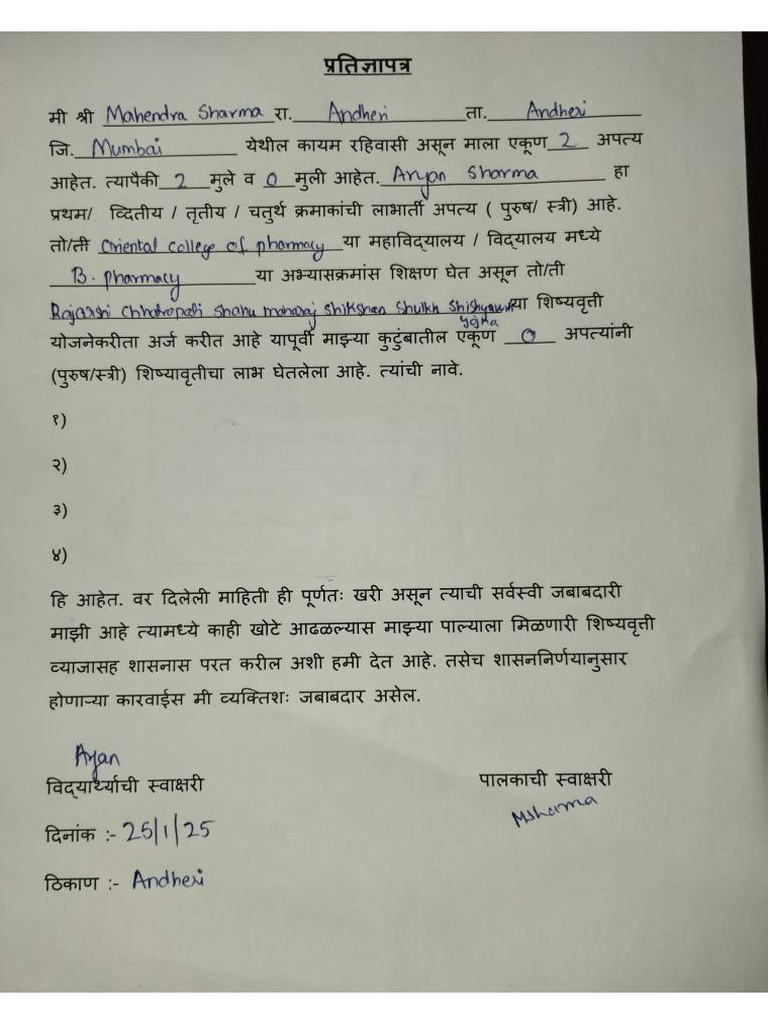 प्रतिज्ञापत्र
मी श्री Mahendra Sharma रा. Andheri ता. Andheri
जि. Mumbai येथील कायम रहिवासी असून माला एकूण 2 अपत्य
आहेत. त्यापैकी 2 मुले व 0 मुली आहेत. Aryan Sharma हा
प्रथम/ व्दितीय / तृतीय / चतुर्थ क्रमाकांची लाभार्ती अपत्य ( पुरुष/ स्त्री) आहे.
तो/ती Oriental college of pharmacy या महाविद्यालय / विद्यालय मध्ये
B. pharmacy या अभ्यासक्रमांस शिक्षण घेत असून तो/ती
Rajarshi Chhatrapati Shahu maharaj Shikshan Shulkh Shishyavrutti yojna या शिष्यवृत्ती
योजनेकरीता अर्ज करीत आहे यापूर्वी माझ्या कुटुंबातील एकूण 0 अपत्यांनी
(पुरुष/स्त्री) शिष्यावृतीचा लाभ घेतलेला आहे. त्यांची नावे.
१)
२)
३)
४)
हि आहेत. वर दिलेली माहिती ही पूर्णतः खरी असून त्याची सर्वस्वी जबाबदारी
माझी आहे त्यामध्ये काही खोटे आढळल्यास माझ्या पाल्याला मिळणारी शिष्यवृत्ती
व्याजासह शासनास परत करील अशी हमी देत आहे. तसेच शासननिर्णयानुसार
होणाऱ्या कारवाईस मी व्यक्तिशः जबाबदार असेल.
Aryan
विद्यार्थ्याची स्वाक्षरी पालकाची स्वाक्षरी
MSharma
दिनांक :- 25/1/25
ठिकाण :- Andheri